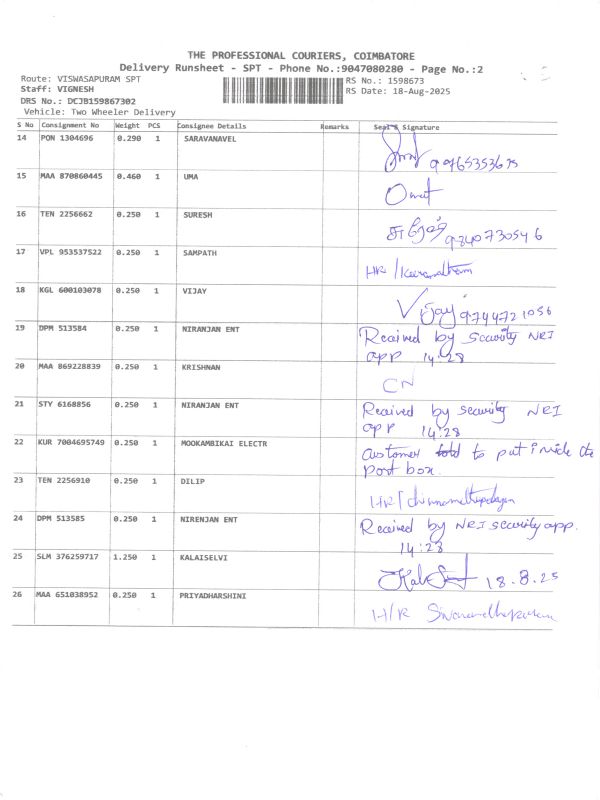 THE PROFESSIONAL COURIERS, COIMBATORE
Delivery Runsheet - SPT - Phone No.:9047080280 - Page No.:2
Route: VISWASAPURAM SPT
Staff: VIGNESH
DRS No.: DCJB159867302
Vehicle: Two Wheeler Delivery
RS No.: 1598673
RS Date: 18-Aug-2025
S No Consignment No Weight PCS Consignee Details Remarks Seal & Signature
14 PON 1304696 0.290 1 SARAVANAVEL
15 MAA 870860445 0.460 1 UMA
16 TEN 2256662 0.250 1 SURESH 9840730546
17 VPL 953537522 0.250 1 SAMPATH HR /
18 KGL 600103078 0.250 1 VIJAY Vijay 9744721056
19 DPM 513584 0.250 1 NIRANJAN ENT Recived by security NRI
app 14:28
20 MAA 869228839 0.250 1 KRISHNAN CN
21 STY 6168856 0.250 1 NIRANJAN ENT Recived by security NRI
app 14:28
22 KUR 7004695749 0.250 1 MOOKAMBIKAI ELECTR customer told to put inside the
post box.
23 TEN 2256910 0.250 1 DILIP HR /
24 DPM 513585 0.250 1 NIRENJAN ENT Received by NRI security app.
14:28
25 SLM 376259717 1.250 1 KALAISELVI 18.8.25
26 MAA 651038952 0.250 1 PRIYADHARSHINI H/R